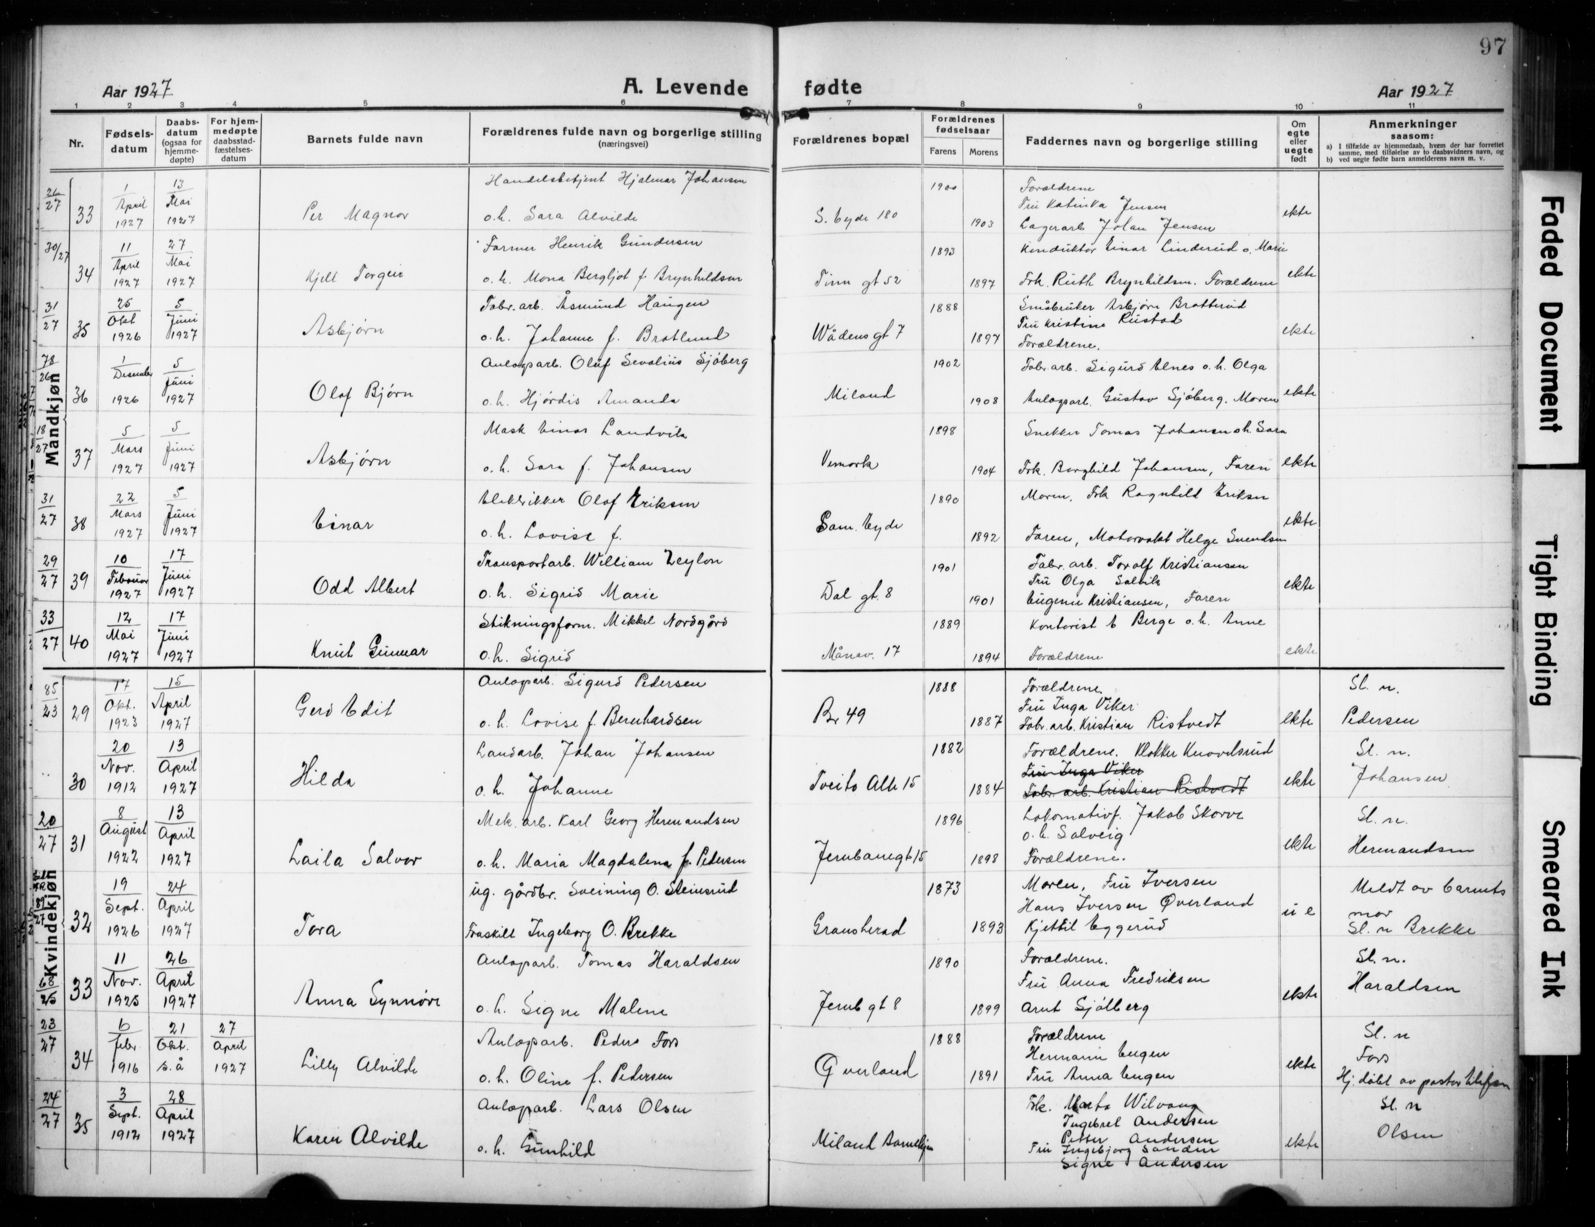 97
Aar 1927
A. Levende fødte
Aar 1927
1 2 3 4 5 6 7 8 9 10 11
Nr.
Fødsels-datum
Daabs-datum (ogsaa for hjemme-døpte)
For hjem-medøpte daabsstad-fæstelses-datum
Barnets fulde navn
Forældrenes fulde navn og borgerlige stilling (næringsvei)
Forældrenes bopæl
Forældrenes fødselsaar
Farens Morens
Faddernes navn og borgerlige stilling
Om egte eller uegte født
Anmerkninger saasom:
a) I tilfælde av hjemmedaab, hvem der har forrettet samme, med tilføielse av to daabsvidners navn, og
b) ved uegte fødte barn anmelderens navn m. v.
Mandkjøn
26/27 33 1/April 1927 13/Mai 1927 Per Magnor
Handelsbetjent Hjalmar Johansen
o.h. Sara Alvilde
S. byde 180 1900 1903
Forældrene
Fru Katinka Jensen
Lagerarb Johan Jensen
ekte
30/27 34 11/April 1927 27/Mai 1927 Kjell Torgeir
Farmer Henrik Gundersen
o.h. Mona Bergljot f. Brynhildsen
Tinn gt 52 1893 1897
Konduktør Einar Linderud o. Marie
Frk. Ruth Brynhildsen. Forældrene
ekte
31/27 35 25/Okt 1926 5/Juni 1927 Asbjørn
Fabr. arb. Åsmund Haugen
o.h. Johanne f. Bratlund
Wådens gt 7 1888 1897
Småbruker Asbjørn Bratterud
Fru Kristine Rustad
Forældrene.
ekte
78/26 36 1/Desember 1926 5/Juni 1927 Olaf Bjørn
Anlægsarb. Oluf Sevalius Sjøberg
o.h. Hjørdis Amanda
Miland 1902 1908
Fabr. arb. Sigurd Elnes o.h. Olga
Anlægsarb. Gustav Sjøberg. Moren
ekte
18/27 37 5/Mars 1927 5/Juni 1927 Asbjørn
Mask Einar Landvik
o.h. Sara f. Johansen
Vemork 1898 1904
Snekker Tomas Johansen o.h. Sara
Frk. Borghild Johansen, Faren
ekte
31/27 38 22/Mars 1927 5/Juni 1927 Einar
Elektriker Olaf Eriksen
o.h. Lovise f.
Sam. byde 1890 1892
Moren, Frk Ragnhild Eriksen
Faren, Motorvakt Helge Svendsen
ekte
29/27 39 10/Februar 1927 17/Juni 1927 Odd Albert
Transportarb. William Zeylon
o.h. Sigrid Marie
Dal gt. 8 1901 1901
Fabr. arb. Torolf Kristiansen
Fru Olga Solvik
Eugenie Kristiansen, Faren
ekte
33/27 40 12/Mai 1927 17/Juni 1927 Knut Gunnar
Stikningsform. Mikkel Nordgård
o.h. Sigrid
Månev. 17 1889 1894
Kontorist E Berge o.h. Anne
Forældrene
ekte
Kvindekjøn
85/23 29 17/Okt. 1923 15/April 1927 Gerd Edit
Anlægsarb. Sigurd Pedersen
o.h. Lovise f. Bernhardsen
Br 49 1888 1887
Forældrene
Fru Inga Viker
Fabr. arb. Kristian Ristvedt
ekte
Sl. n.
Pedersen
30 20/Nov. 1912 13/April 1927 Hilda
Landarb. Johan Johansen
o.h. Johanne
Tveito Allé 15 1882 1884
Forældrene. Klokker Knovelsrud
Fru Inga Viker
Fabr. arb. Kristian Ristvedt
ekte
Sl. n.
Johansen
20/27 31 8/August 1922 13/April 1927 Laila Salvor
Mek. arb. Karl Georg Hermandsen
o.h. Maria Magdalena f. Pedersen
Jernbanegt 15 1896 1898
Lokomotivf. Jakob Skorve
o.h. Salveig
Forældrene.
ekte
Sl. n.
Hermandsen
32 19/Sept. 1926 24/April 1927 Tora
ug. gårdbr. Sveining O. Steinsrud
Fraskilt Ingeborg O. Brekke
Gransherad 1873 1893
Moren, Fru Iversen
Hans Iversen Øverland
Kjettil Eggerud
u e
Meldt av barnets
mor
Sl. n Brekke
68/25 33 11/Nov. 1925 26/April 1927 Anna Synnøve
Anlægsarb. Tomas Haraldsen
o.h. Signe Malene
Jernb gt 8 1890 1899
Forældrene.
Fru Anna Fredriksen
Arnt Sjølberg
ekte
Sl. n.
Haraldsen
23/27 34 6/febr 1916 21/Okt. s.å 27/April 1927 Lilly Alvilde
Anlægsarb. Peder Fors
o.h. Oline f. Pedersen
Øverland 1888 1891
Forældrene
Hermann Eugen
Fru Anna Eugen
ekte
Sl. n
Fors
Hj. døbt av pastor Elefsen
24/27 35 3/Sept. 1912 28/April 1927 Karen Alvilde
Anlægsarb. Lars Olsen
o.h. Gunhild
Miland
Frk. Marta Wilvang
Ingebret Andersen
Petter Andersen
Fru Ingebjørg Sanden
Signe Andersen
ekte
Sl. n
Olsen
Faded Document
Tight Binding
Smeared Ink